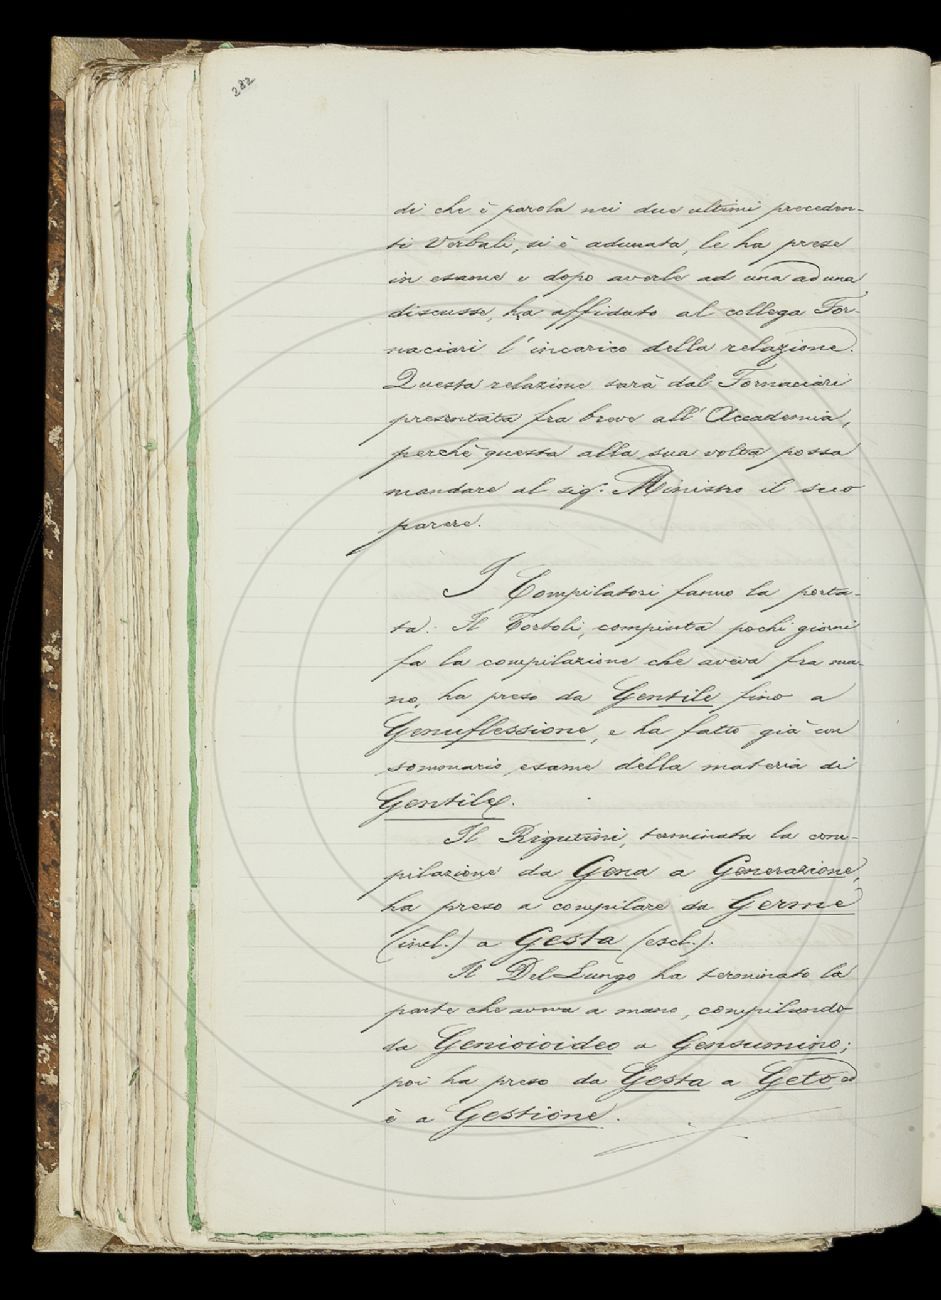 282
di che è parola nei due ultimi preceden-
ti Verbali, si è adunata, le ha prese
in esame e dopo averle ad una ad una
discusse, ha affidato al collega For-
naciari l'incarico della relazione.
Questa relazione sarà dal Fornaciari
presentata fra breve all'Accademia,
perchè questa alla sua volta possa
mandare al sig. Ministro il suo
parere.
I Compilatori fanno la porta-
ta: Il Tortoli, compiuta pochi giorni
fa la compilazione che aveva fra ma-
no, ha preso da Gentile fino a
Genuflessione, e ha fatto già un
sommario esame della materia di
Gentile.
Il Rigutini, terminata la com-
pilazione da Gena a Generazione,
ha preso a compilare da Germe
(incl.) a Gesta (escl.).
Il Del Lungo ha terminato la
parte che aveva a mano, compilando
da Genioioideo a Gensumino;
poi ha preso da Gesta a Geto e
è a Gestione.